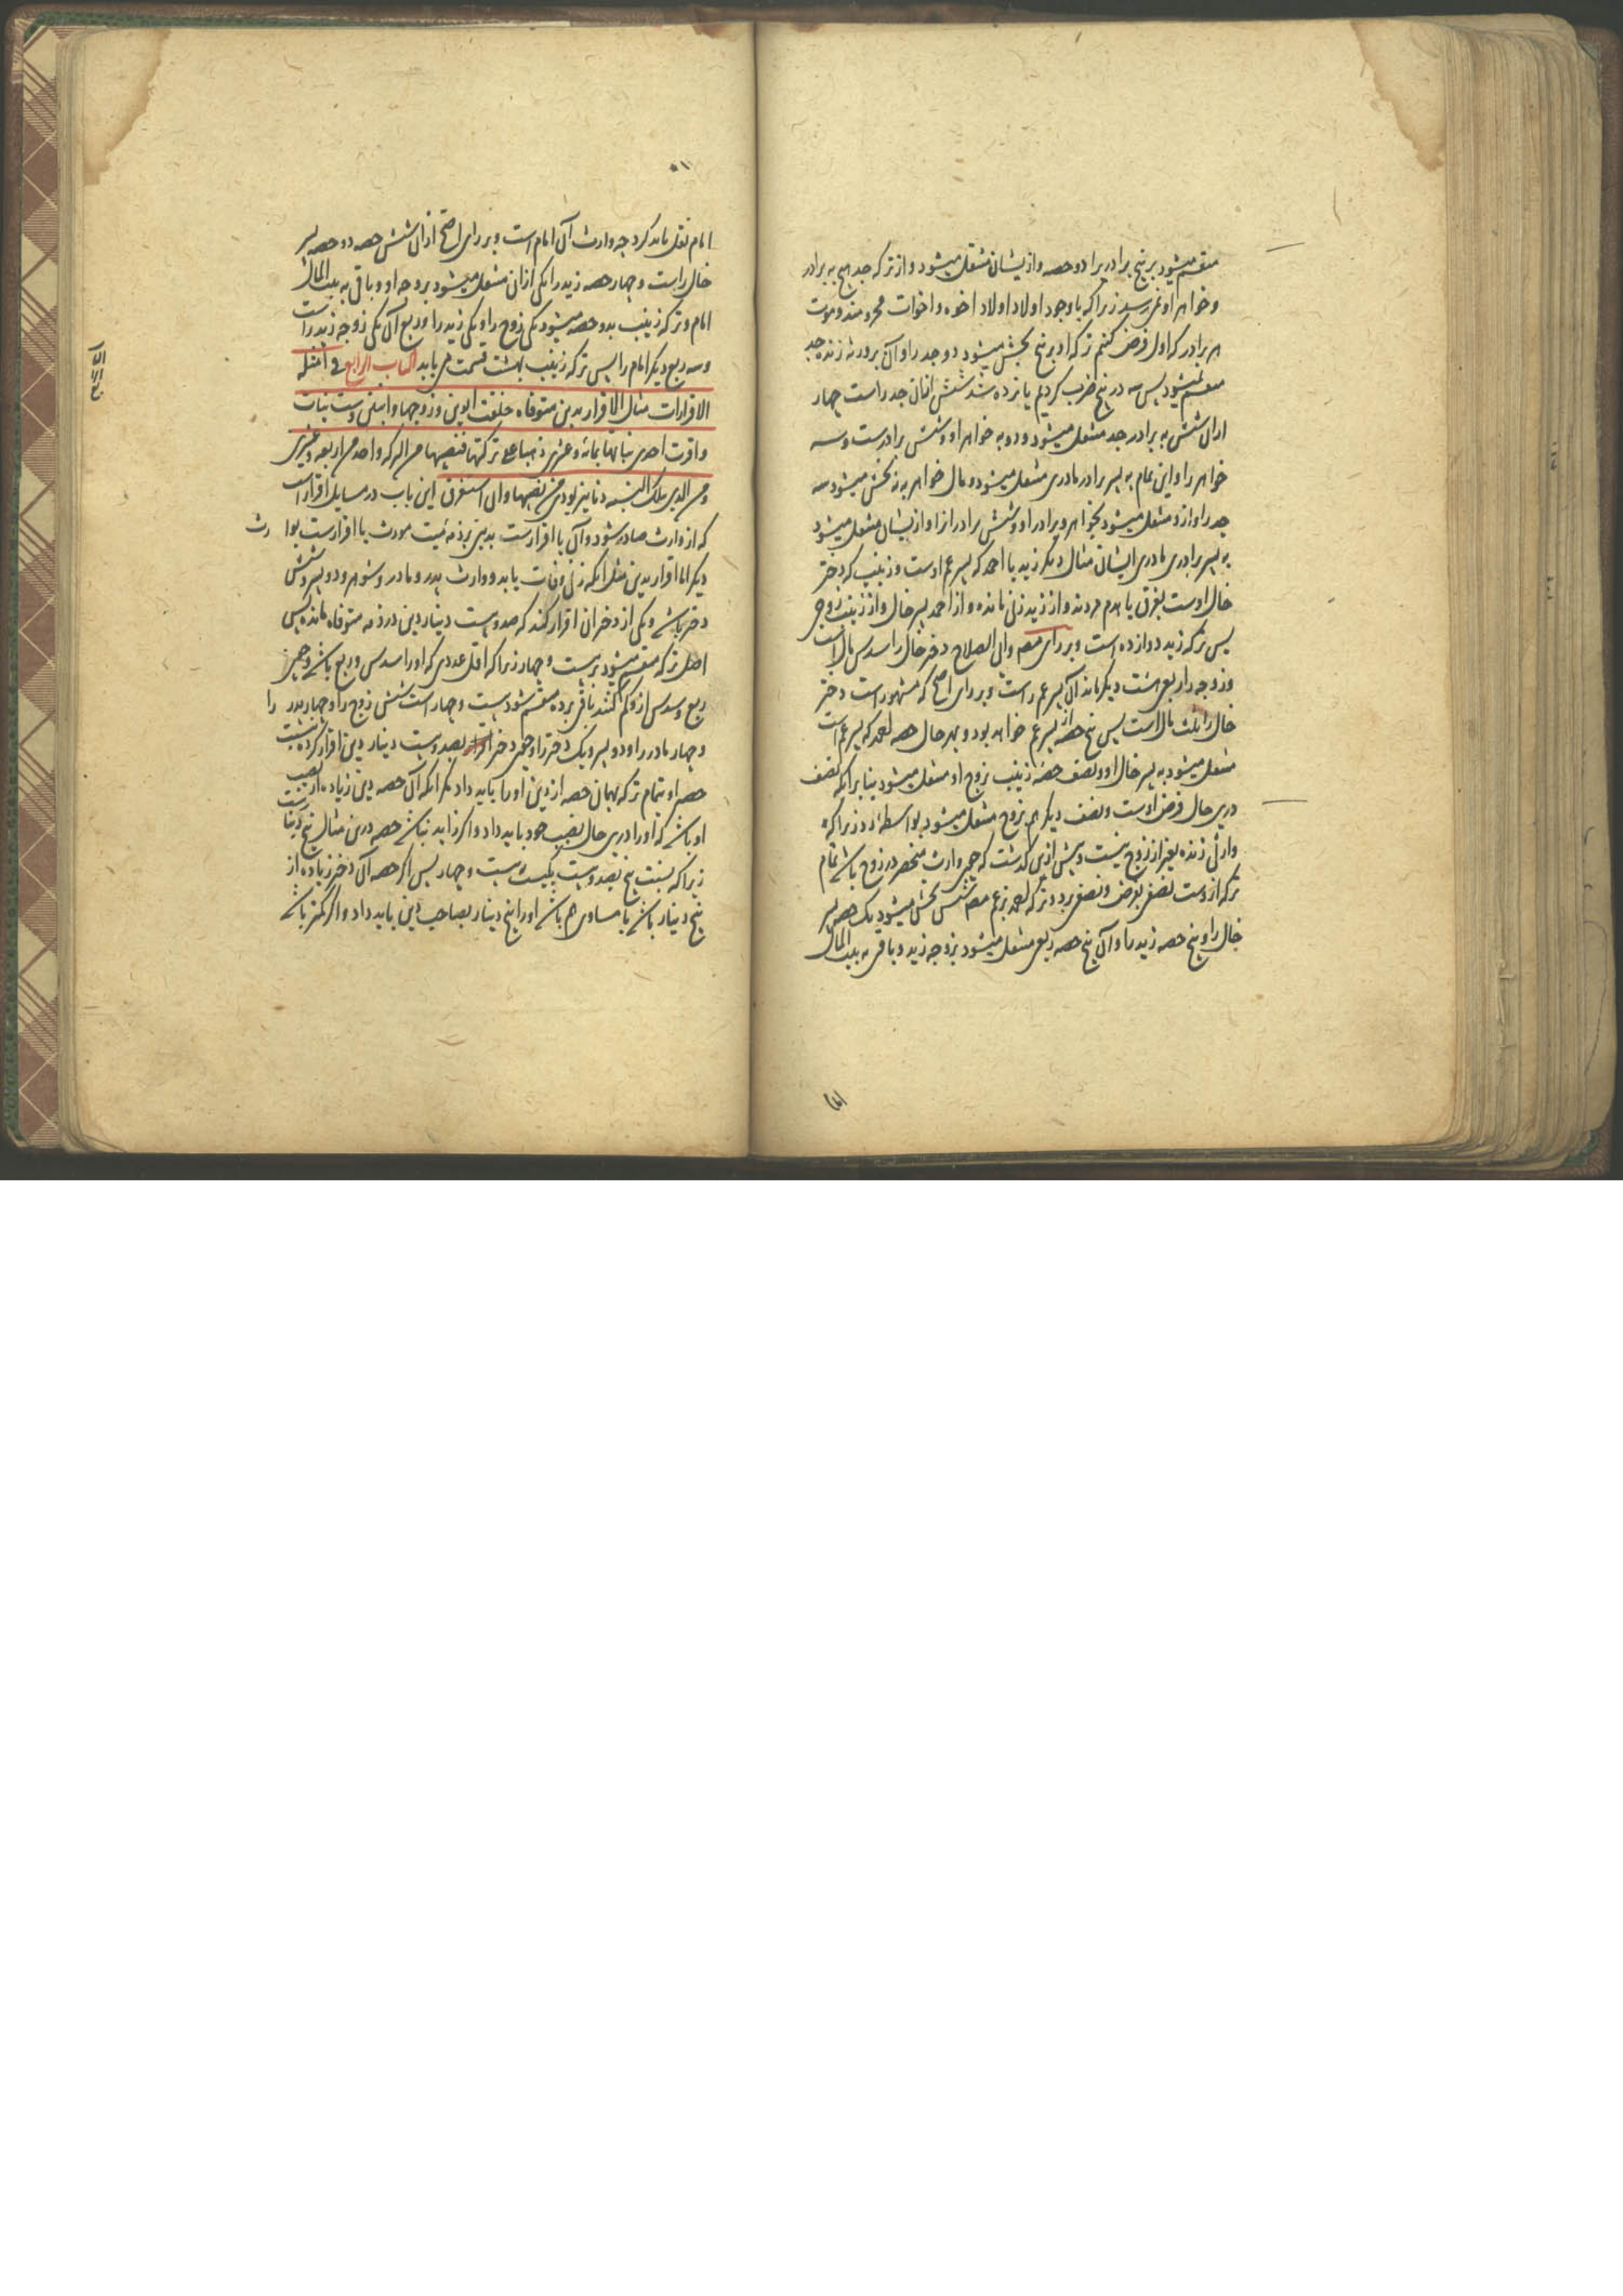 منقسم میشود بر پنج برادر برا دو حصه و ازیشان منتقل میشود و از ترکه جد هیچ به برادر
و خواهر او نمیرسد زیرا که با وجود اولاد اولاد اخوه و اخوات محرومند و موت
هر برادر که اول فرض کنیم ترکه او بر پنج بخش میشود دو جد را و آن بورثه زنده جد
منقسم میشود پس سه در پنج ضرب کردیم پانزده شد شش ازان جد راست چهار
ازان شش به برادر جد منتقل میشود و دو به خواهر او و شش برادرست و سه
خواهر را و این تمام به پسر برادر مادری منتقل میشود و مال خواهر به پنج بخش میشود سه
جد را و ازو منتقل میشود بخواهر و برادر او و شش برادر را و ازیشان منتقل میشود
به پسر برادری مادری ایشان مثال دیگر زید با احمد که پسر عم اوست و زینب که دختر
خال اوست بغرق یا هدم مردند و از زید زنی مانده و از احمد پسر خال و از زینب زوج
پس ترکه زید دوازده است و بر رای مصر وابی الصلاح دختر خال را سدس مال است
و زوجه را ربع هشت دیگر ماند آن پسر عم راست و بر رای اصح که مشهور است دختر
خال را ثلث مال است پس پنج حصه از پسر عم خواهد بود و بهر حال حصه احمد که پسر عم است
منتقل میشود به پسر خال او و نصف حصه زینب بزوج او منتقل میشود بنا بر آنکه نصف
درین حال فرض اوست و نصف دیگر هم بزوج منتقل میشود بواسطه رد زیرا که
وارثی زنده بغیر از زوج نیست و پیش ازین گذشت که چون وارث منحصر در زوج باشد تمام
ترکه ازوست نصفی بفرض و نصفی برد و ترکه احمد بزعم مصر شش بخش میشود یک حصه پسر
خال را و پنج حصه زید را و آن پنج حصه ربعی منتقل میشود بزوجه زید و باقی به بیت المال
امام نقل باید کرد چه وارث آن امام است و بر رای اصح ازان شش حصه دو حصه پسر
خال راست و چهار حصه زید را یکی ازان منتقل میشود بزوجه او و باقی به بیت المال
امام و ترکه زینب بدو حصه میشود یکی زوج را و یکی زید را و ربع آن یکی زوجه زید راست
و سه ربع دیگر امام را پس ترکه زینب بهشت قسمت می یابد الباب الرابع فی امثلة
الاقرارات مثال الاقرار بدین متوفاه خلفت ابوین و زوجها و ابنین و ست بنات
و اقرت احدی بناتها بمائة و عشرین ذهبا علی ترکتها فنصیبها من الترکه واحد من اربعة و عشرین
این باب در مسایل اقرار است
که از وارث صادر شود و آن یا اقرارست بدین بر ذمه میت مورث یا اقرارست بوارث
دیگر اما اقرار بدین مثل آنکه زنی وفات یابد و وارث پدر و مادر و شوهر و دو پسر و شش
دختر باشد و یکی از دختران اقرار کند که صد و بیست دینار دین در ذمه متوفاه مانده پس
اصل ترکه منقسم میشود بر بیست و چهار زیرا که اقل عددی که او را سدس و ربع باشد و چون
ربع و سدسی ازو کم کنند باقی بر ده منقسم شود بیست و چهار است شش زوج را و چهار پدر را
و چهار مادر را و دو پسر و یک دختر را و چون دختر بصد و بیست دینار دین اقرار کرده بنسبت
حصه او بتمام ترکه بهمان حصه از دین او را باید داد مگر آنکه آن حصه دین زیاده از نصیب
او باشد که او را درین حال نصیب خود باید داد و اگر زاید نباشد حصه درین مثال پنج دینار است
زیرا که نسبت پنج بصد و بیست یکیست به بیست و چهار پس اگر حصه آن دختر زیاده از
پنج دینار باشد یا مساوی هم باشد او را پنج دینار بصاحب دین باید داد و اگر کمتر باشد